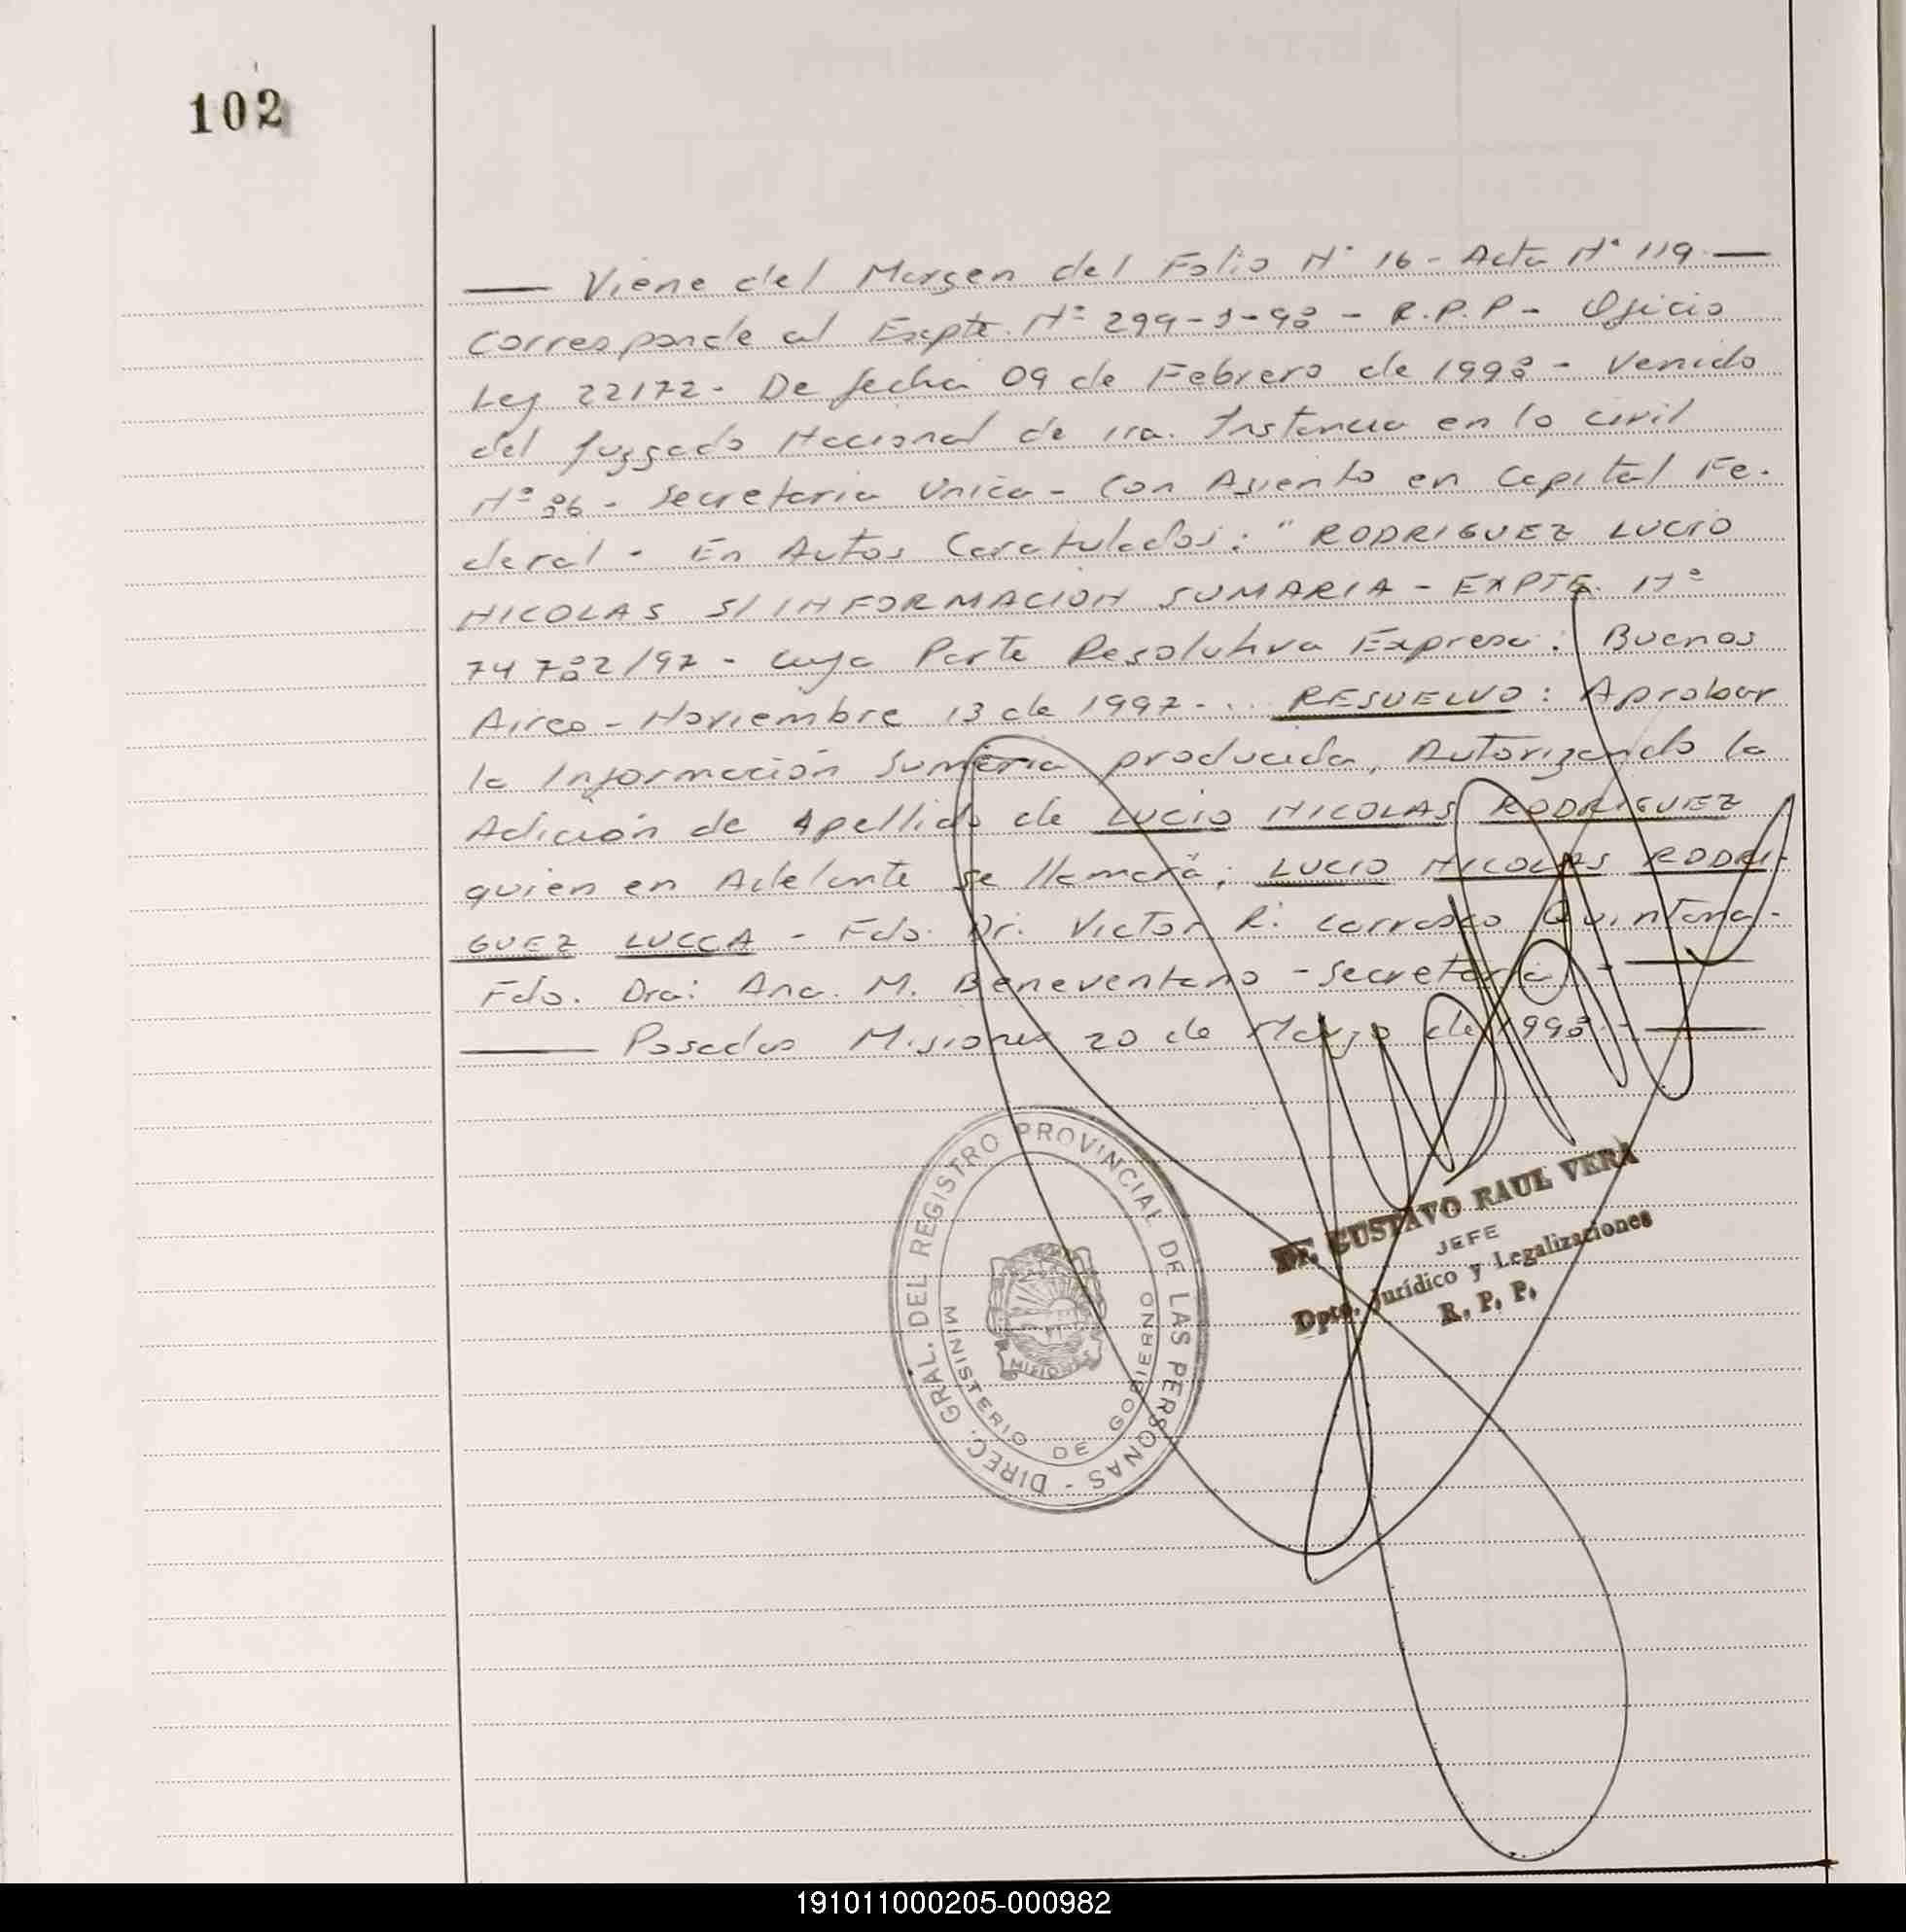 102
— Viene del Margen del Folio N° 16 - Acta N° 119 —
Corresponde al Expte. N° 299-J-98 - R.P.P - Oficio
Ley 22172 - De fecha 09 de Febrero de 1998 - Venido
del Juzgado Nacional de 1ra. Instancia en lo civil
N° 86 - Secretaria Unica - Con Asiento en Capital Fe-
deral - En Autos Caratulados: "RODRIGUEZ LUCIO
NICOLAS S/INFORMACION SUMARIA - EXPTE. N°
74782/97 - cuya Parte Resolutiva Expresa: Buenos
Aires - Noviembre 13 de 1997 - .. RESUELVO: Aprobar
la Información Sumaria producida, Autorizando la
Adición de Apellido de LUCIO NICOLAS RODRIGUEZ
quien en Adelante se llamará; LUCIO NICOLAS RODRI-
GUEZ LUCCA - Fdo. Dr. Victor R. Carrasco Quintana -
Fdo. Dra: Ana. M. Beneventano - Secretaria - —
— Posadas Misiones 20 de Marzo de 1998 - —
DIREC. GRAL. DEL REGISTRO PROVINCIAL DE LAS PERSONAS -
MINISTERIO DE GOBIERNO
MISIONES
Dr. GUSTAVO RAUL VERA
JEFE
Dpto. Jurídico y Legalizaciones
R. P. P.
191011000205-000982